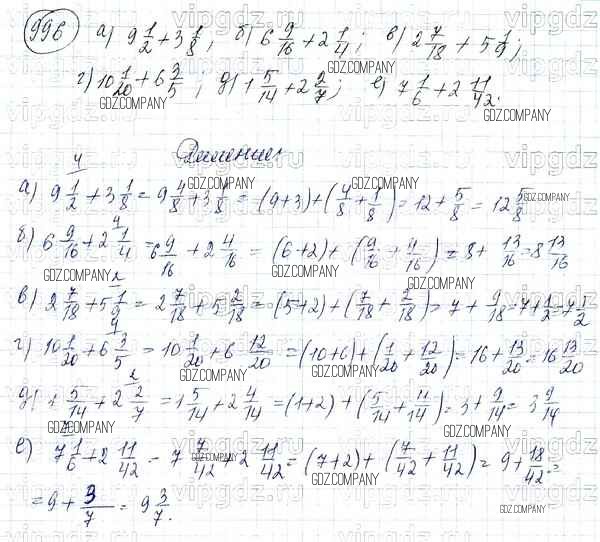 996 а) 9 1/2 + 3 1/8; б) 6 9/16 + 2 1/4; в) 2 7/18 + 5 1/9;
г) 10 1/20 + 6 3/5; д) 1 5/14 + 2 2/7; е) 7 1/6 + 2 11/42.
Решение:
а) 9 1/2 + 3 1/8 = 9 4/8 + 3 1/8 = (9+3) + (4/8 + 1/8) = 12 + 5/8 = 12 5/8
б) 6 9/16 + 2 1/4 = 6 9/16 + 2 4/16 = (6+2) + (9/16 + 4/16) = 8 + 13/16 = 8 13/16
в) 2 7/18 + 5 1/9 = 2 7/18 + 5 2/18 = (5+2) + (7/18 + 2/18) = 7 + 9/18 = 7 + 1/2 = 7 1/2
г) 10 1/20 + 6 3/5 = 10 1/20 + 6 12/20 = (10+6) + (1/20 + 12/20) = 16 + 13/20 = 16 13/20
д) 1 5/14 + 2 2/7 = 1 5/14 + 2 4/14 = (1+2) + (5/14 + 4/14) = 3 + 9/14 = 3 9/14
е) 7 1/6 + 2 11/42 = 7 7/42 + 2 11/42 = (7+2) + (7/42 + 11/42) = 9 + 18/42 =
= 9 + 3/7 = 9 3/7.